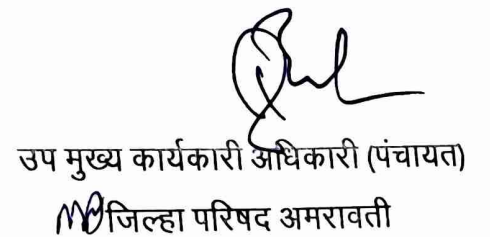 उप मुख्य कार्यकारी अधिकारी (पंचायत)
जिल्हा परिषद अमरावती